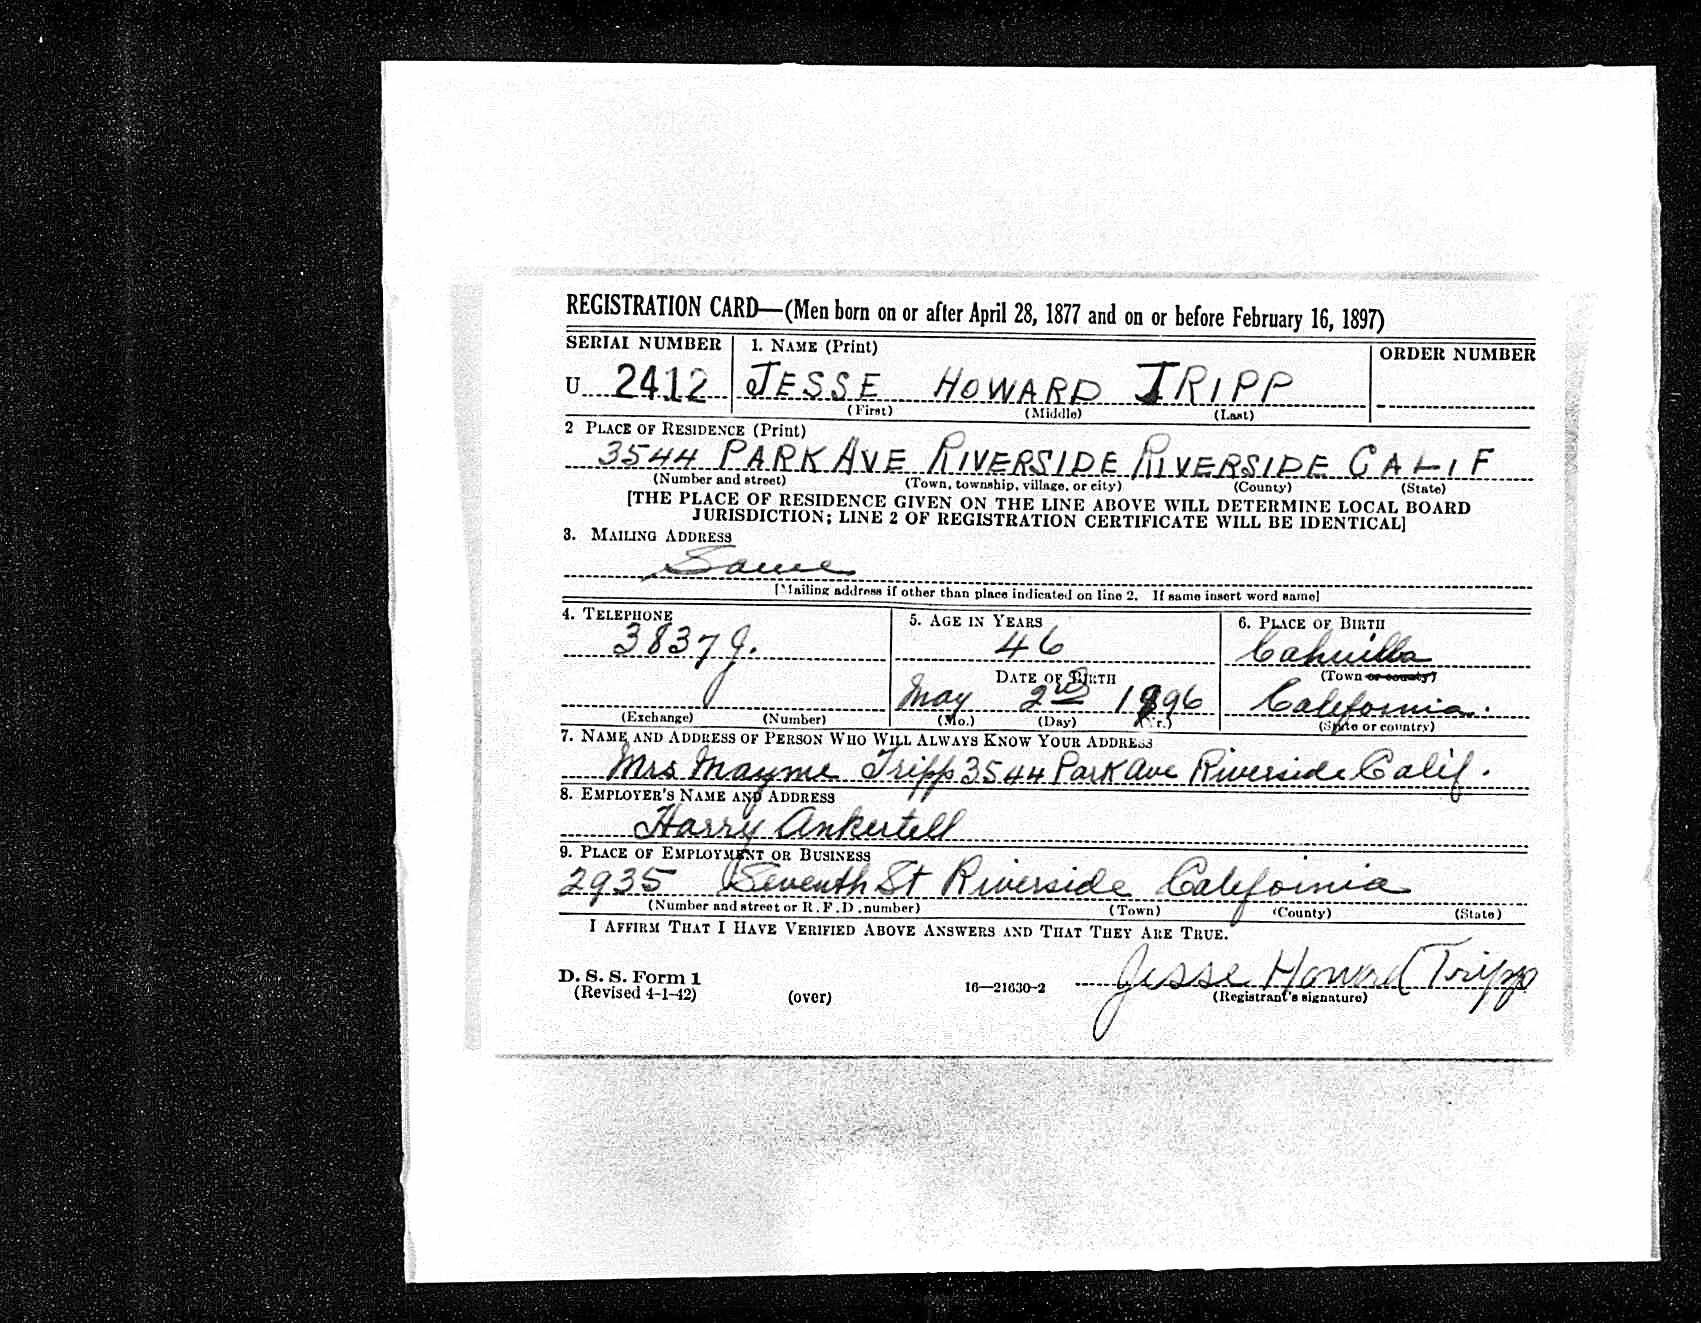 REGISTRATION CARD—(Men born on or after April 28, 1877 and on or before February 16, 1897)
SERIAL NUMBER 1. NAME (Print) ORDER NUMBER
U 2412 JESSE HOWARD TRIPP
(First) (Middle) (Last)
2 PLACE OF RESIDENCE (Print)
3544 PARK AVE RIVERSIDE RIVERSIDE CALIF
(Number and street) (Town, township, village, or city) (County) (State)
[THE PLACE OF RESIDENCE GIVEN ON THE LINE ABOVE WILL DETERMINE LOCAL BOARD
JURISDICTION; LINE 2 OF REGISTRATION CERTIFICATE WILL BE IDENTICAL]
3. MAILING ADDRESS
Same
[Mailing address if other than place indicated on line 2. If same insert word same]
4. TELEPHONE 5. AGE IN YEARS 6. PLACE OF BIRTH
3837 J. 46 Cahuilla
DATE OF BIRTH (Town or county)
May 2nd 1896 California.
(Exchange) (Number) (Mo.) (Day) (Yr.) (State or country)
7. NAME AND ADDRESS OF PERSON WHO WILL ALWAYS KNOW YOUR ADDRESS
Mrs Mayme Tripp 3544 Park Ave Riverside Calif.
8. EMPLOYER'S NAME AND ADDRESS
Harry Ankertell
9. PLACE OF EMPLOYMENT OR BUSINESS
2935 Seventh St Riverside California
(Number and street or R. F. D. number) (Town) (County) (State)
I AFFIRM THAT I HAVE VERIFIED ABOVE ANSWERS AND THAT THEY ARE TRUE.
Jesse Howard Tripp
D. S. S. Form 1
(Revised 4-1-42) (over) 16—21630-2 (Registrant's signature)